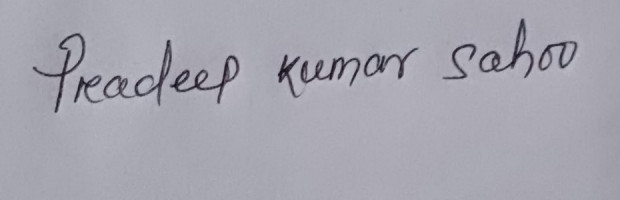 Preadeep Kumar Sahoo